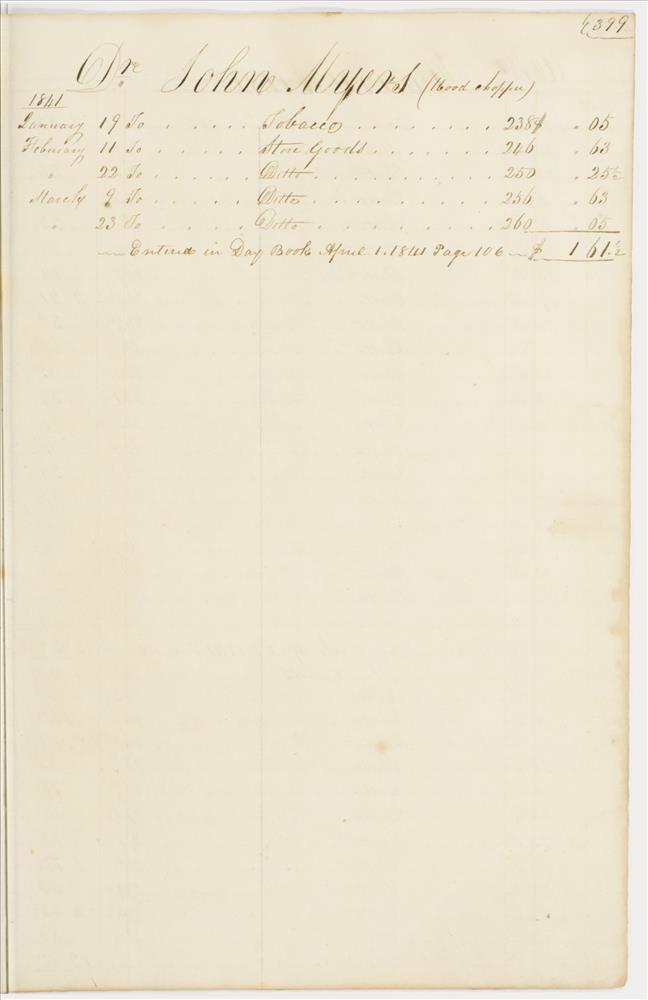 399
Dr John Myers (Wood chopper)
1841
January 19 To . . . . . . Tobacco . . . . . . . . 238 $ . 05
February 11 To . . . . . . Store Goods . . . . . . . 246 . 63
" 22 To . . . . . . Ditto . . . . . . . . . . 250 . 25½
March 9 To . . . . . . Ditto . . . . . . . . . . 256 . 63
" 23 To . . . . . . Ditto . . . . . . . . . . 260 . 05
— Entered in Day Book April 1. 1841 Page 106 — $ 1 61½